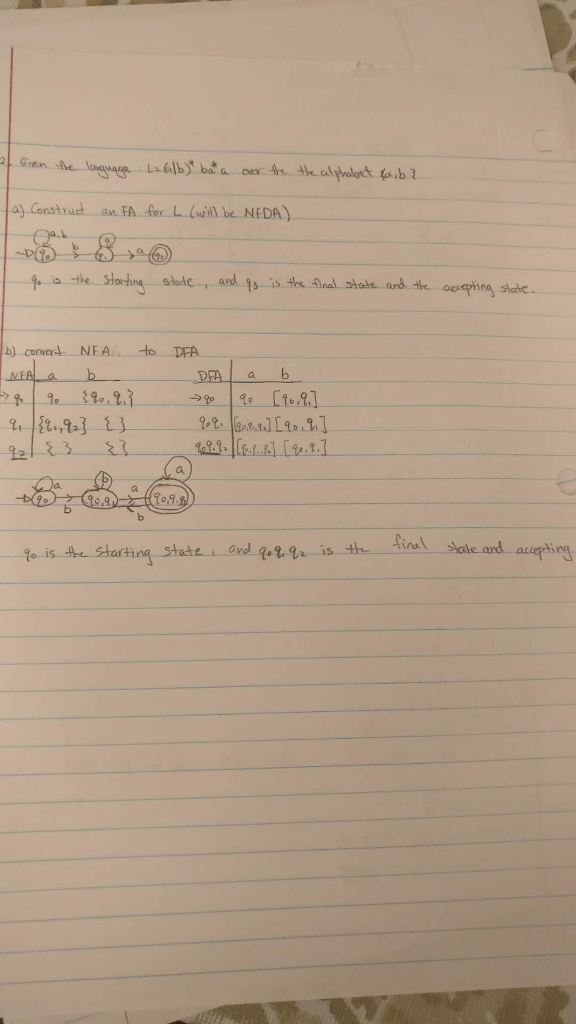 2. Given the language L=(a|b)* ba*a over the the alphabet {a,b}
a) Construct an FA for L (will be NFDA)
a,b b a a
q0 q1 q2
q0 is the starting state, and q3 is the final state and the accepting state.
b) convert NFA to DFA
NFA a b DFA a b
→q0 q0 {q0,q1} →q0 q0 [q0,q1]
q1 {q1,q2} { } q0q1 [q0,q1,q2] [q0,q1]
q2 { } { } q0q1q2 [q0,q1] 
a b a a
q0 q0,q1 q0,q1,q2
b b
q0 is the starting state, and q0q1q2 is the final state and accepting